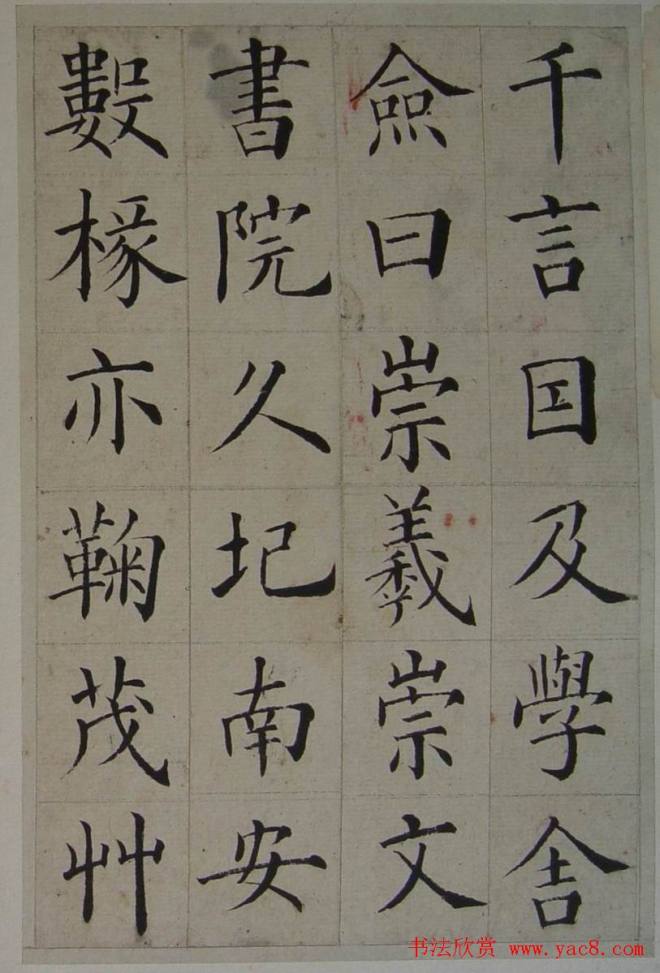 千言囯及學舍
僉曰崇義崇文
書院久圮南安
數椽亦鞠茂艸
书法欣赏 www.yac8.com